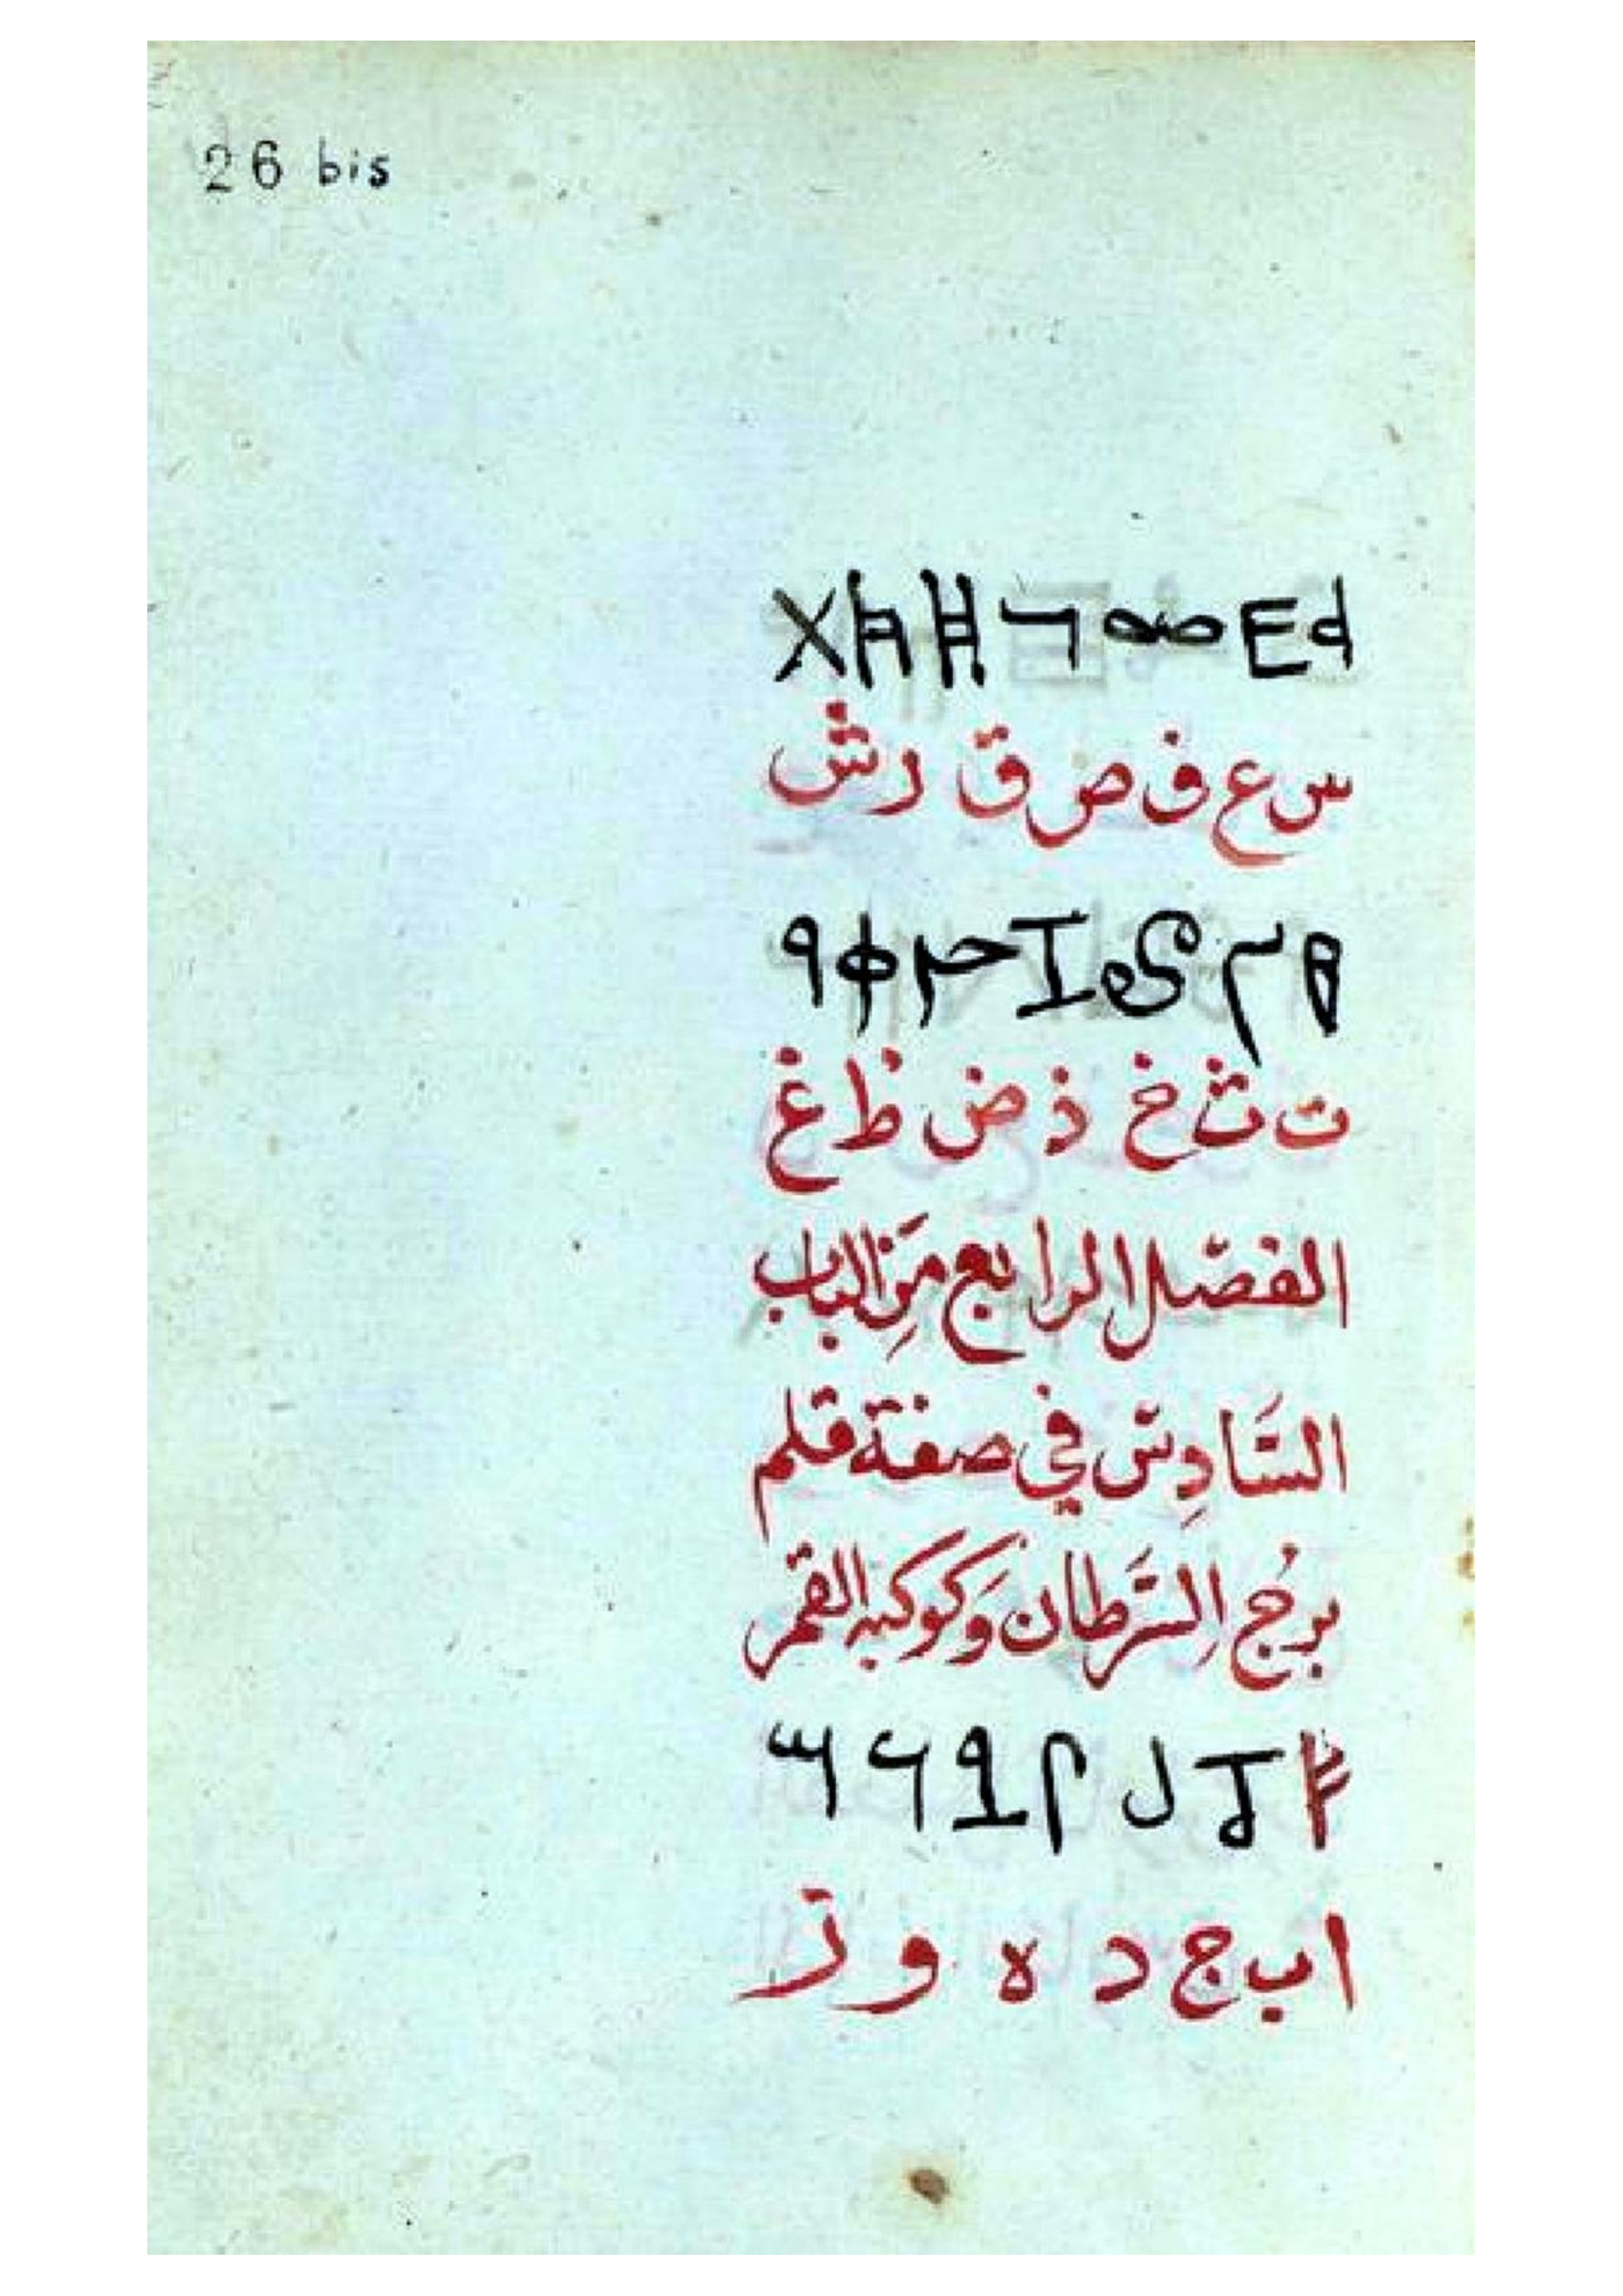 26 bis
س ع ف ص ق ر ش
ت ث خ ذ ض ظ غ
الفصل الرابع مِنَ الباب
السَّادِس في صفة قلم
برُج السَّرطان وَكوكبه القمر
ا ب ج د ه و ز